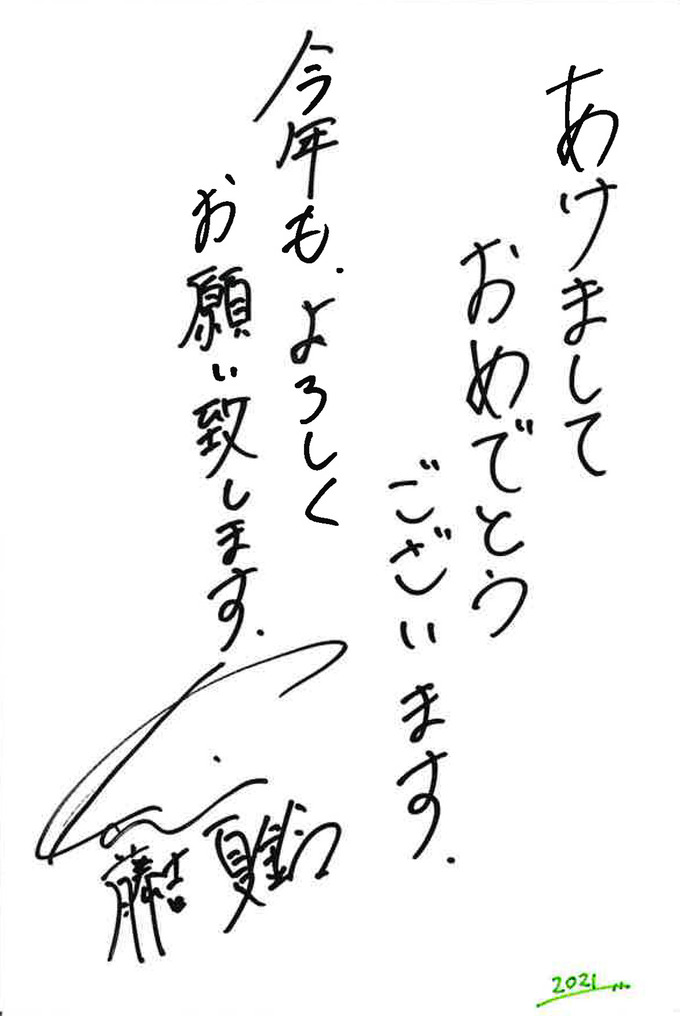 あけまして
おめでとう
ございます.
今年も、よろしく
お願い致します.
2021